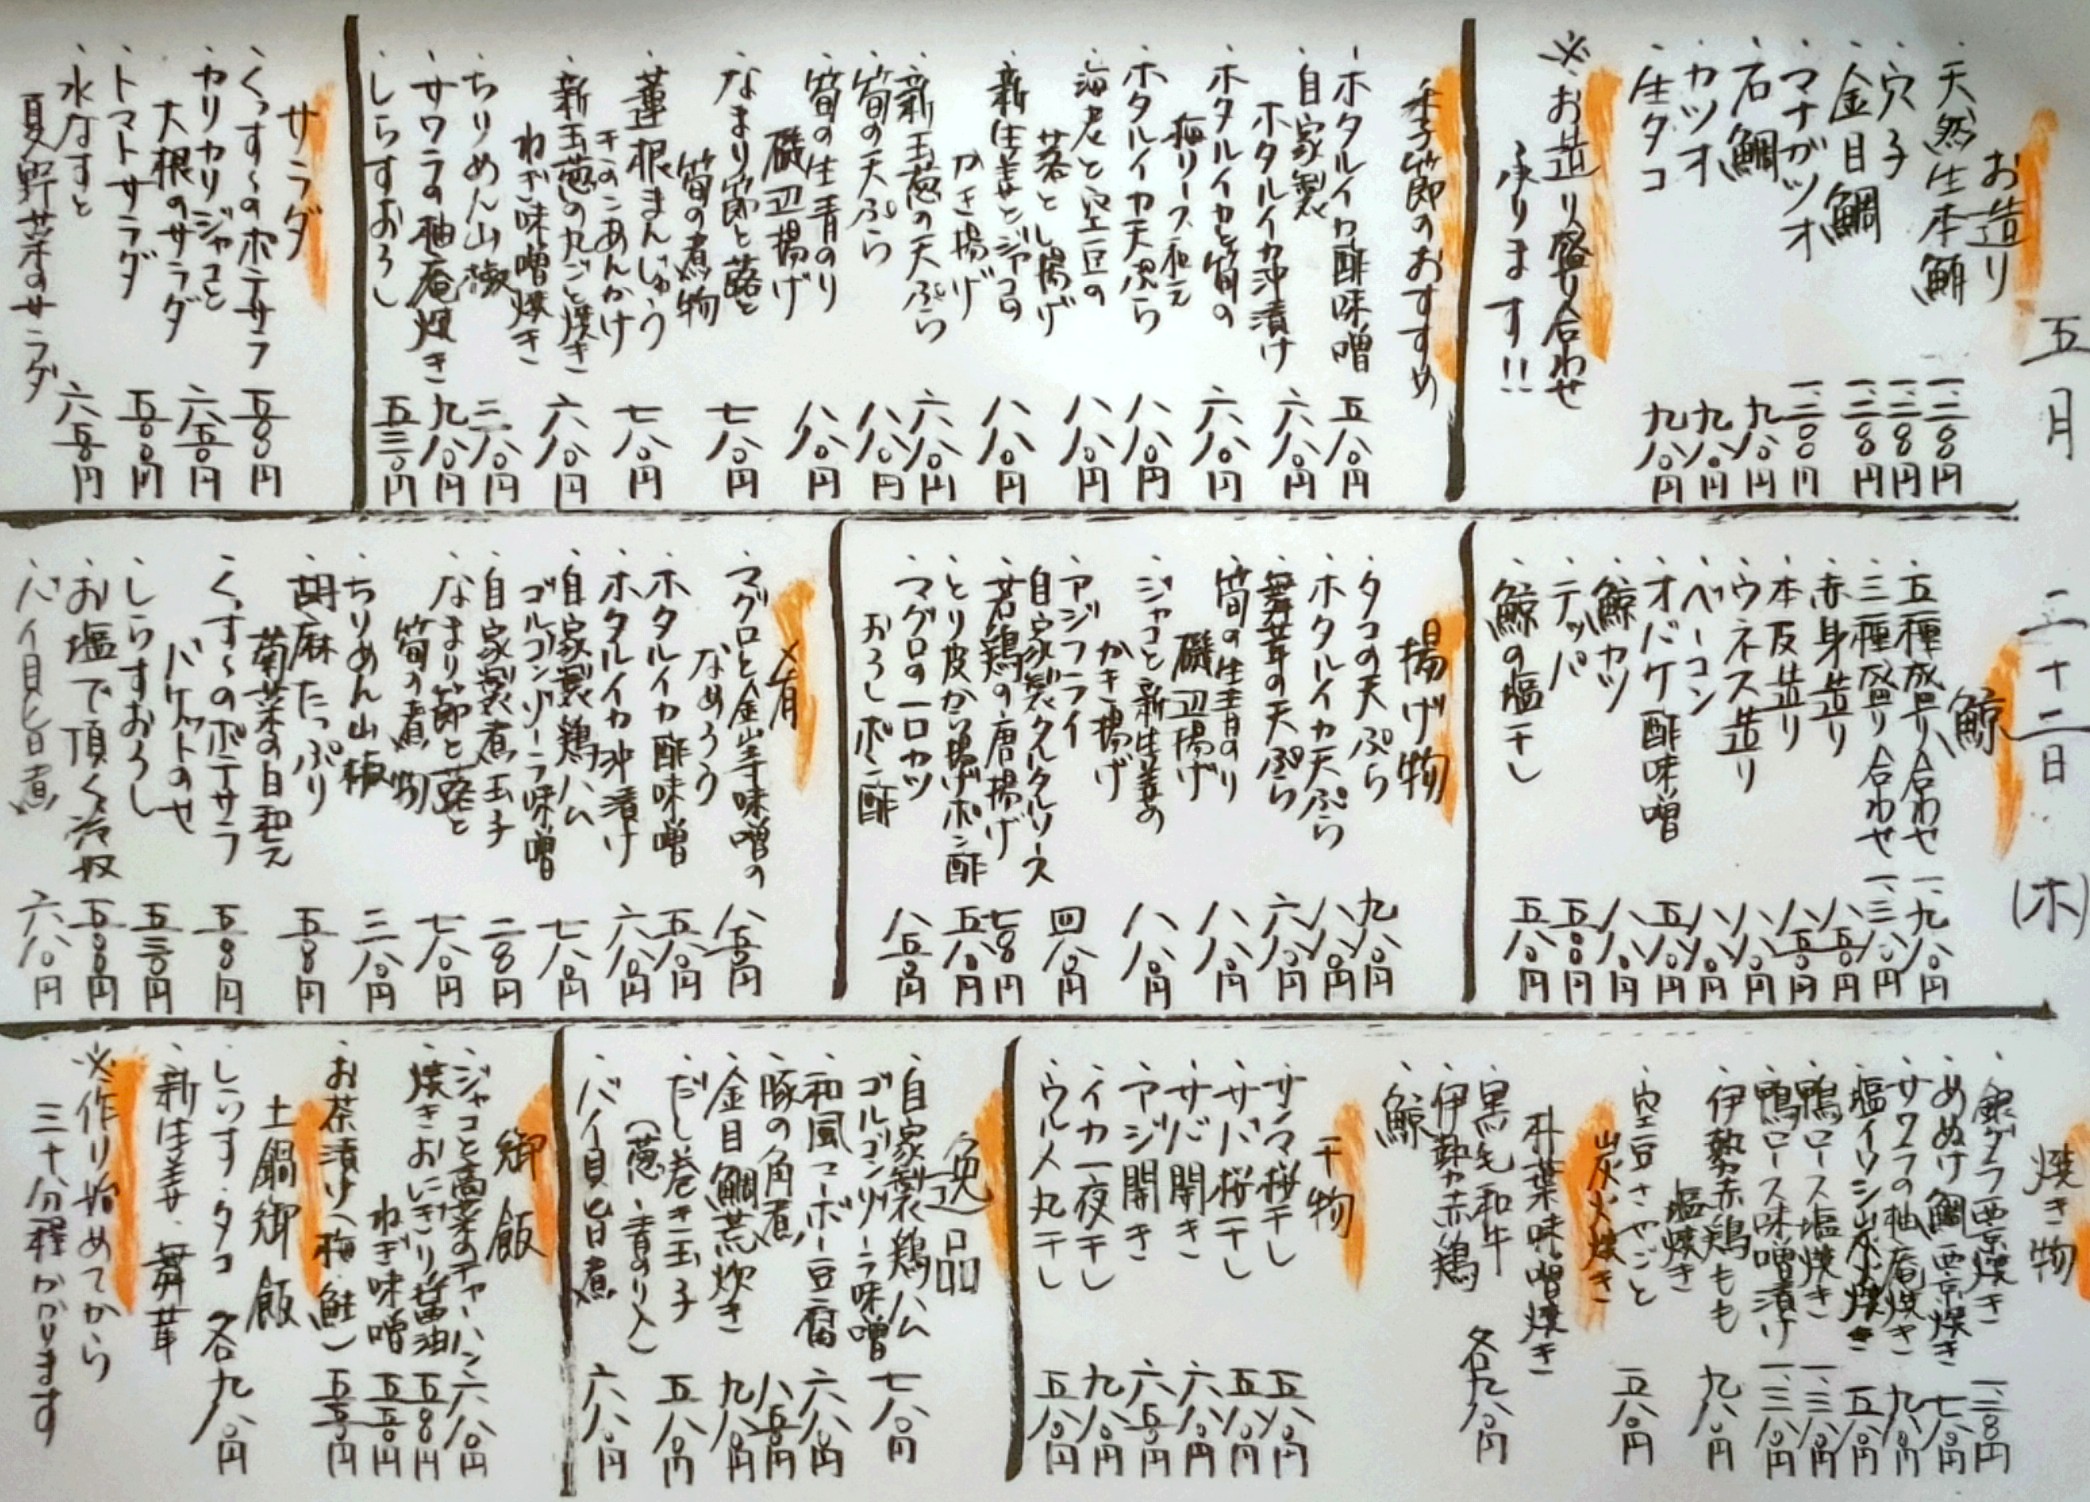 五月 二十二日 (木)
お造り
・天然生本鮪 一、二〇〇円
・穴子 一、二〇〇円
・金目鯛 一、二〇〇円
・マナガツオ 一、二〇〇円
・石鯛 九八〇円
・カツオ 九八〇円
・生タコ 九八〇円
※お造り盛り合わせ
承ります!!
季節のおすすめ
・ホタルイカ酢味噌 五八〇円
・自家製
ホタルイカ沖漬け 六八〇円
・ホタルイカと筍の
梅リース和え 六八〇円
・ホタルイカ天ぷら 八八〇円
・海老と空豆の
落とし揚げ 八八〇円
・新生姜とジャコの
かき揚げ 八八〇円
・新玉葱の天ぷら 六八〇円
・筍の天ぷら 八八〇円
・筍の生青のり
磯辺揚げ 八八〇円
・なまり節と蕗と
筍の煮物 七八〇円
・蓮根まんじゅう
キのこあんかけ 七八〇円
・新玉葱の丸ごと焼き
ねぎ味噌焼き 六八〇円
・ちりめん山椒 三八〇円
・サワラの柚庵焼き 九八〇円
・しらすおろし 五三〇円
サラダ
・くっすんのポテサラ 五五〇円
・カリカリジャコと
大根のサラダ 六五〇円
・トマトサラダ 五五〇円
・水なすと
夏野菜のサラダ 六五〇円
鯨
・五種盛り合わせ 一、九八〇円
・三種盛り合わせ 一、三八〇円
・赤身造り 八五〇円
・本皮造り 八五〇円
・ウネス造り 八八〇円
・ベーコン 八八〇円
・オバケ酢味噌 五八〇円
・鯨カツ 八八〇円
・テッパ 五五〇円
・鯨の塩干し 五八〇円
揚げ物
・タコの天ぷら 九八〇円
・ホタルイカ天ぷら 八八〇円
・舞茸の天ぷら 六八〇円
・筍の生青のり
磯辺揚げ 八八〇円
・ジャコと新生姜の
かき揚げ 八八〇円
・アジフライ
自家製タルタルソース 四八〇円
・若鶏の唐揚げ 七五〇円
・とり皮から揚げポン酢 五八〇円
・マグロの一口カツ
おろしポン酢 八五〇円
肴
・マグロと金山寺味噌の
なめろう 八五〇円
・ホタルイカ酢味噌 五八〇円
・ホタルイカ沖漬け 六八〇円
・自家製鶏ハム
ゴルゴンゾーラ味噌 七八〇円
・自家製煮玉子 二五〇円
・なまり節と蕗と
筍の煮物 七八〇円
・ちりめん山椒 三八〇円
・胡麻たっぷり
菊菜の白和え 五五〇円
・くっすんのポテサラ
バケットのせ 五五〇円
・しらすおろし 五三〇円
・お塩で頂く冷奴 五五〇円
・バイ貝旨煮 六八〇円
焼き物
・銀ダラ西京焼き 一、二八〇円
・めぬけ鯛西京焼き 七八〇円
・サワラの柚庵焼き 九八〇円
・塩イワシ炭火焼き 五八〇円
・鴨ロース塩焼き 一、三八〇円
・鴨ロース味噌漬け 一、三八〇円
・伊勢赤鶏もも
塩焼き 九八〇円
・空豆さやごと
炭火焼き 五八〇円
朴葉味噌焼き
・黒毛和牛
・伊勢赤鶏 各九八〇円
・鯨
干物
・サンマ桜干し 五八〇円
・サバ桜干し 五八〇円
・サバ開き 六八〇円
・アジ開き 六五〇円
・イカ一夜干し 九八〇円
・ウルメ丸干し 五八〇円
逸品
・自家製鶏ハム
ゴルゴンゾーラ味噌 七八〇円
・和風マーボー豆腐 六八〇円
・豚の角煮 八五〇円
・金目鯛荒炊き 九八〇円
・だし巻き玉子
(葱・青のり入) 五八〇円
・バイ貝旨煮 六八〇円
御飯
・ジャコと高菜のチャーハン 六八〇円
・焼きおにぎり醤油 五五〇円
ねぎ味噌 五五〇円
・お茶漬け(梅・鮭) 五五〇円
土鍋御飯
・しらす・タコ 各九八〇円
・新生姜・舞茸
※作り始めてから
三十分程かかります